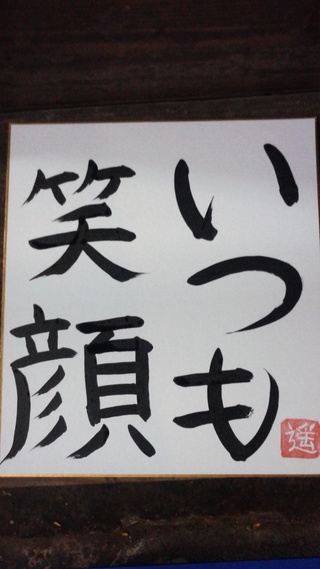 いつも
笑顔
遥